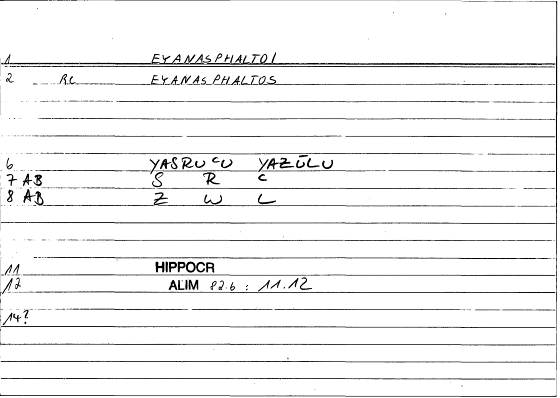 1 EYANASPHALTOI
2 RC EYANASPHALTOS
6 YASRUCU YAZŪLU
7 AB S R C
8 AB Z W L
11 HIPPOCR
12 ALIM 82.6 : 11.12
14?